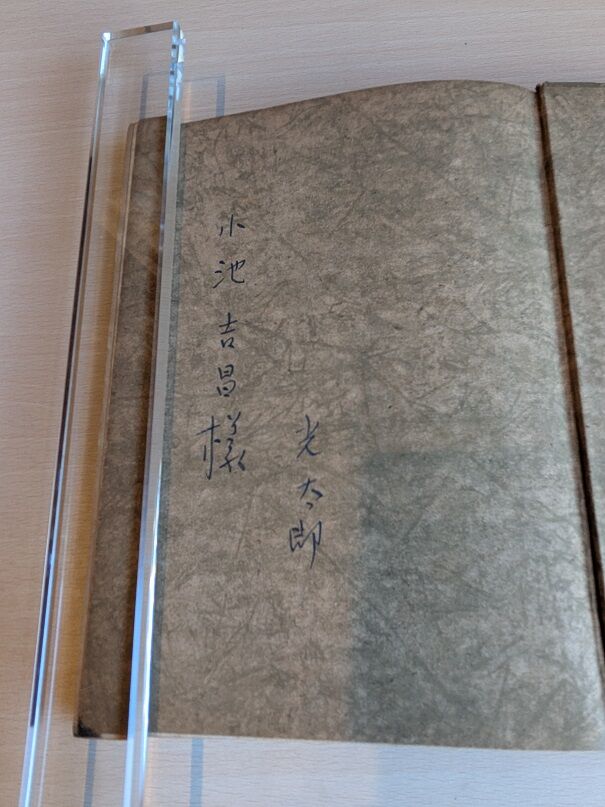 光太郎
小池吉昌様